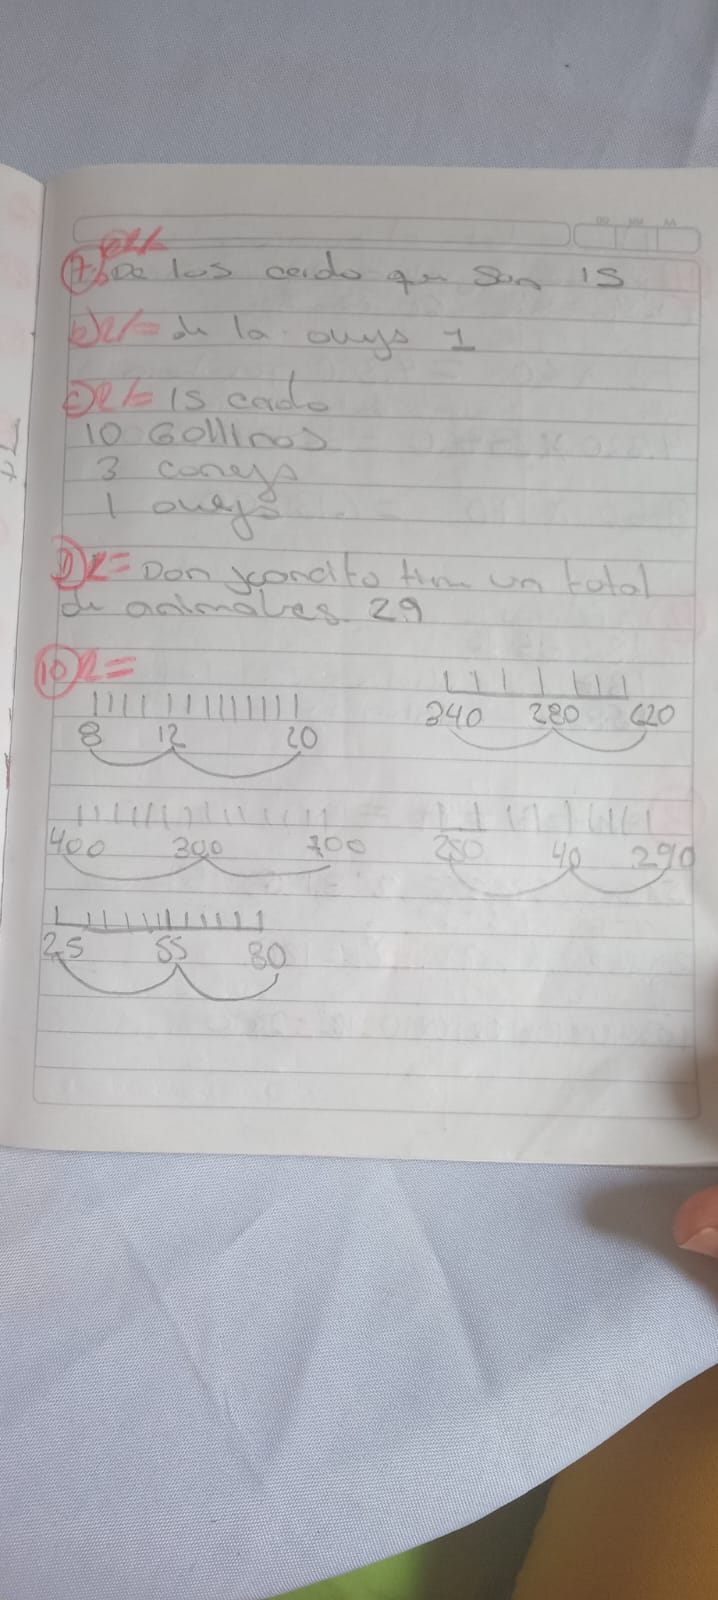 DD MM AA
7 a) R/= De los cerdo que son 15
b) R/= de la oveja 1
c) R/= 15 cerdo
10 Gallinas
3 conejo
1 oveja
D) R= Don juancito tiene un total
de animales 29
10 R=
8 12 20
340 280 620
400 300 700
250 40 290
25 55 80